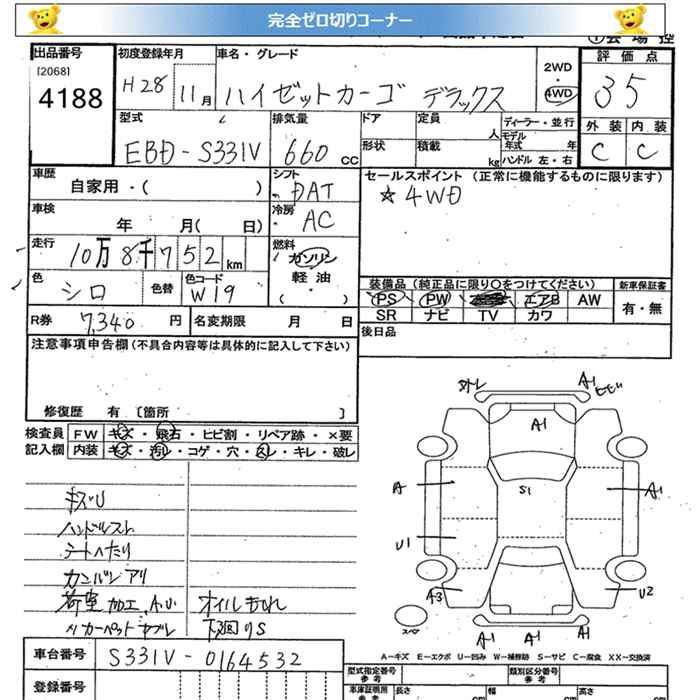 完全ゼロ切りコーナー
出品番号
[2068]
4188
初度登録年月
H28 11月
車名・グレード
ハイゼットカーゴ デラックス
2WD
4WD
評価点
35
外装 内装
C C
型式
EBD-S331V
排気量
660 cc
ドア
形状
定員
人
積載
kg
ディーラー・並行
モデル年式 年
ハンドル 左・右
車歴
自家用・( )
シフト
DAT
セールスポイント (正常に機能するものに限ります)
☆4WD
車検
年 月( 日)
冷房
AC
走行
10万8千752km
燃料
ガソリン
軽油
( )
色
シロ
色替
色コード
W19
装備品 (純正品に限り○をつけてください)
新車保証書
PS PW エアB AW
SR ナビ TV カワ
有・無
R券 7,340円
名変期限 月 日
後日品
注意事項申告欄(不具合内容等は具体的に記入して下さい)
修復歴 有 [箇所 ]
検査員記入欄
FW キズ・飛石・ヒビ割・リペア跡・×要
内装 キズ・汚レ・コゲ・穴・スレ・キレ・破レ
キズU
ハンドルスレ
シートヘたり
カンバンアリ
荷室加工、A.U オイルもれ
カーペットヤブレ 下廻りS
外レ A1 ヒビ
A1
A S1 A1
U1
A3 U2
スペア
A1 A1
A1
A-キズ E-エクボ U-凹み W-補修跡 S-サビ C-腐食 XX-交換済
車台番号
S331V-0164532
登録番号
型式指定番号
参考
類別区分番号
参考
車庫証明用
長さ 幅 高さ